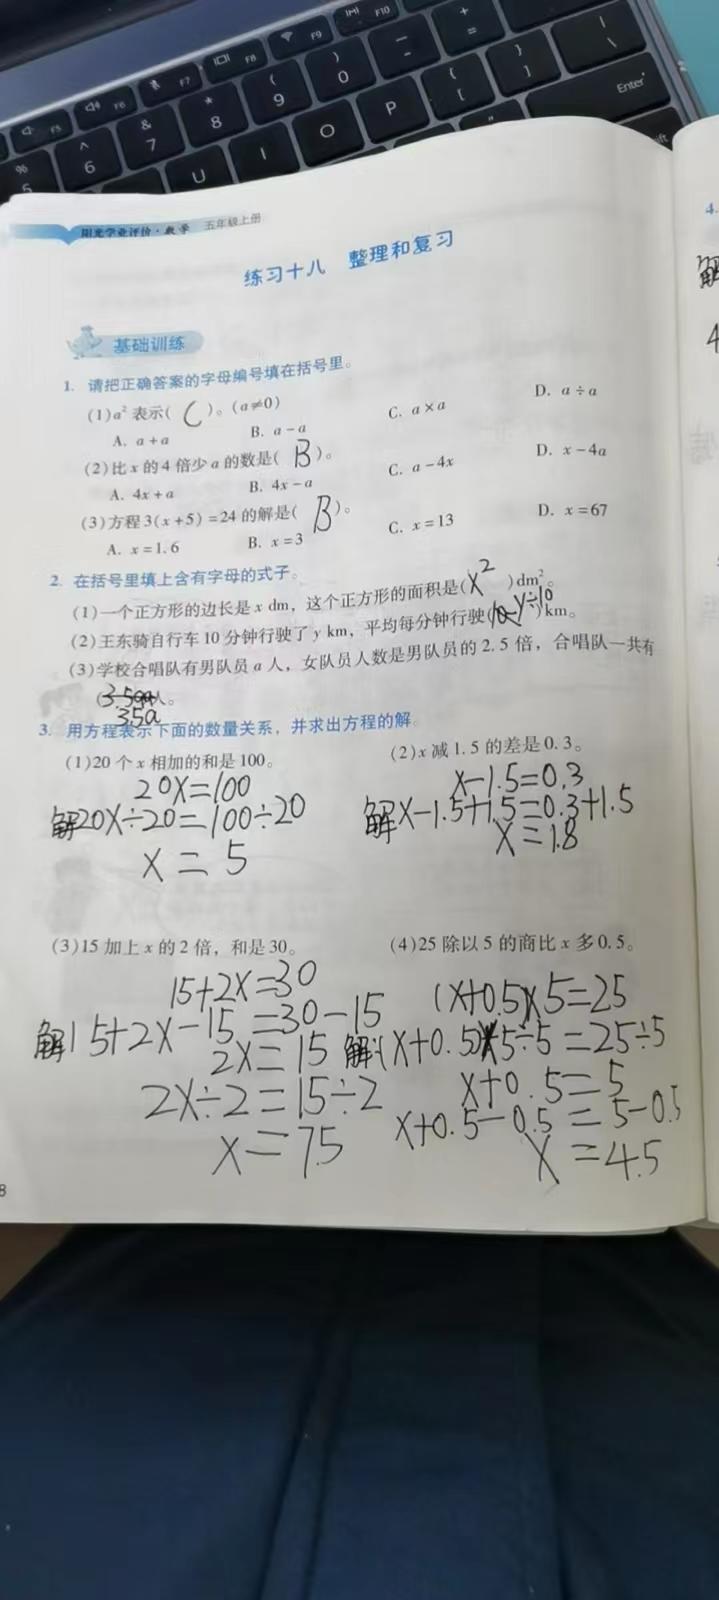 F5
F6
F7
F8
F9
F10
%
5
^
6
&
7
*
8
(
9
)
0
—
-
+
=
|
\
U
I
O
P
{
[
}
]
Enter
阳光学业评价·数学 五年级上册
练习十八 整理和复习
基础训练
1. 请把正确答案的字母编号填在括号里。
(1)a²表示( C )。(a≠0)
A. a+a B. a-a C. a×a D. a÷a
(2)比x的4倍少a的数是( B )。
A. 4x+a B. 4x-a C. a-4x D. x-4a
(3)方程3(x+5)=24的解是( B )。
A. x=1.6 B. x=3 C. x=13 D. x=67
2. 在括号里填上含有字母的式子。
(1)一个正方形的边长是x dm,这个正方形的面积是( x² )dm²。
(2)王东骑自行车10分钟行驶了y km,平均每分钟行驶( y÷10 )km。
(3)学校合唱队有男队员a人,女队员人数是男队员的2.5倍,合唱队一共有
( 3.5a )人。
3. 用方程表示下面的数量关系,并求出方程的解。
(1)20个x相加的和是100。
20x=100
解20x÷20=100÷20
x=5
(2)x减1.5的差是0.3。
x-1.5=0.3
解x-1.5+1.5=0.3+1.5
x=1.8
(3)15加上x的2倍,和是30。
15+2x=30
解15+2x-15=30-15
2x=15
2x÷2=15÷2
x=7.5
(4)25除以5的商比x多0.5。
(x+0.5)×5=25
解:(x+0.5)×5÷5=25÷5
x+0.5=5
x+0.5-0.5=5-0.5
x=4.5
8
4.
解
4